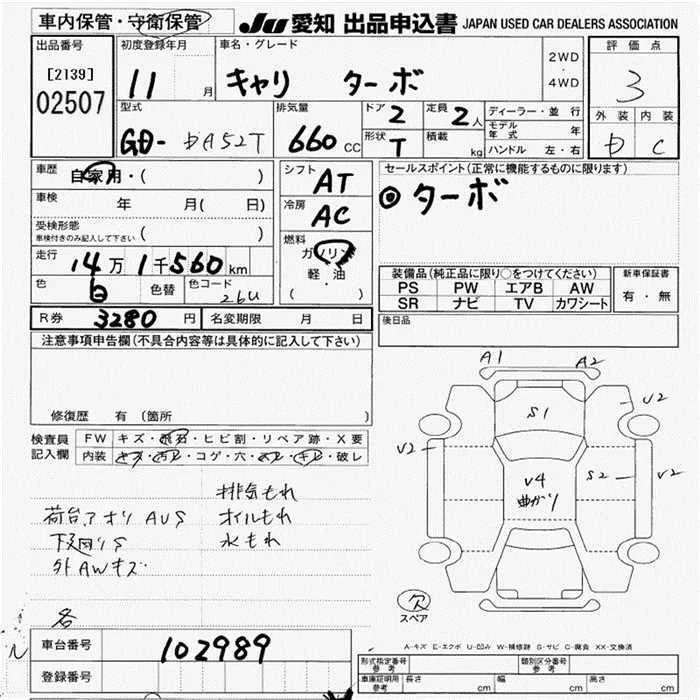 車内保管・守衛保管 JU 愛知 出品申込書 JAPAN USED CAR DEALERS ASSOCIATION
出品番号
[2139]
02507
初度登録年月
11 月
車名・グレード
キャリ ターボ
2WD
・
4WD
評価点
3
外装 内装
D C
型式
GD- DA52T
排気量
660 CC
ドア 2
形状 T
定員 2 人
積載 kg
ディーラー・並行
モデル年式 年
ハンドル 左・右
車歴 自家用・( )
車検 年 月( 日)
受検形態
車検付きのみ記入して下さい ( )
走行 14万1千560km
色 白 色替 色コード 26U
シフト AT
冷房 AC
燃料
ガソリン
軽・油
( )
セールスポイント(正常に機能するものに限ります)
◎ターボ
装備品(純正品に限り○をつけてください)
PS PW エアB AW
SR ナビ TV カワシート
新車保証書
有・無
R券 3280 円 名変期限 月 日
後日品
注意事項申告欄(不具合内容等は具体的に記入して下さい)
修復歴 有(箇所
検査員記入欄
FW キズ・飛石・ヒビ割・リペア跡・X要
内装 キズ・汚レ・コゲ・穴・スレ・キレ・破レ
排気もれ
荷台アオリ AUS オイルもれ
下廻りS 水もれ
外AWキズ
各
A1 A2
S1
U2
U2
V4
曲がり
S2
U2
欠
スペア
A-キズ E-エクボ U-凹み W-補修跡 S-サビ C-腐食 XX-交換済
車台番号 102989
登録番号
形式指定番号
参考
類別区分番号
参考
車庫証明用
参考
長さ cm 幅 cm 高さ cm